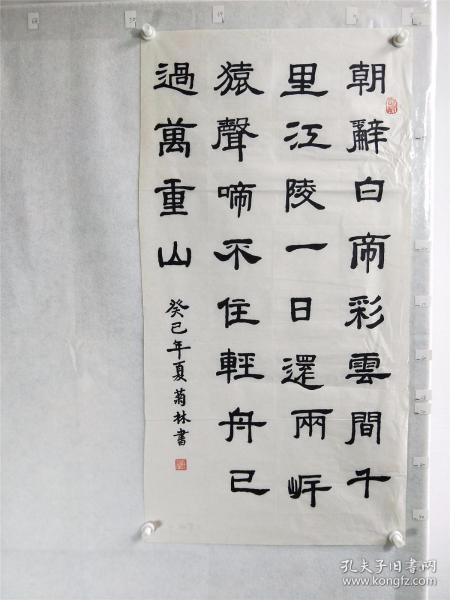 朝辭白帝彩雲間千
里江陵一日還兩岸
猿聲啼不住輕舟已
過萬重山
癸巳年夏菊林書
孔夫子旧书网
www.kongfz.com